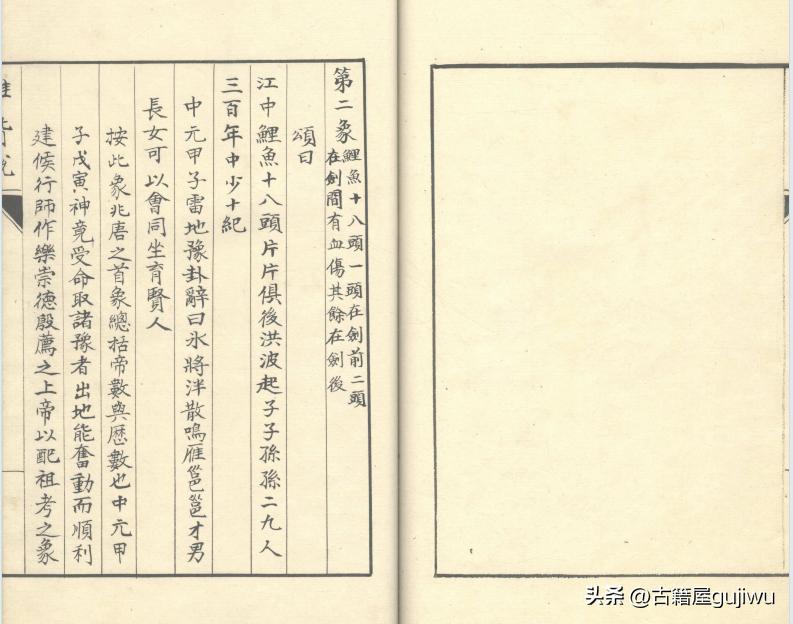 第二象鯉魚十八頭一頭在劍前二頭
在劍間有血傷其餘在劍後
頌曰
江中鯉魚十八頭片片俱後洪波起子子孫孫二九人
三百年中少十紀
中元甲子雷地豫卦辭曰氷將泮散鳴雁邕邕才男
長女可以會同坐育賢人
按此象兆唐之首象總括帝數與歷數也中元甲
子戊寅神堯受命取諸豫者出地能奮動而順利
建侯行師作樂崇德殷薦之上帝以配祖考之象
头条 @古籍屋gujiwu